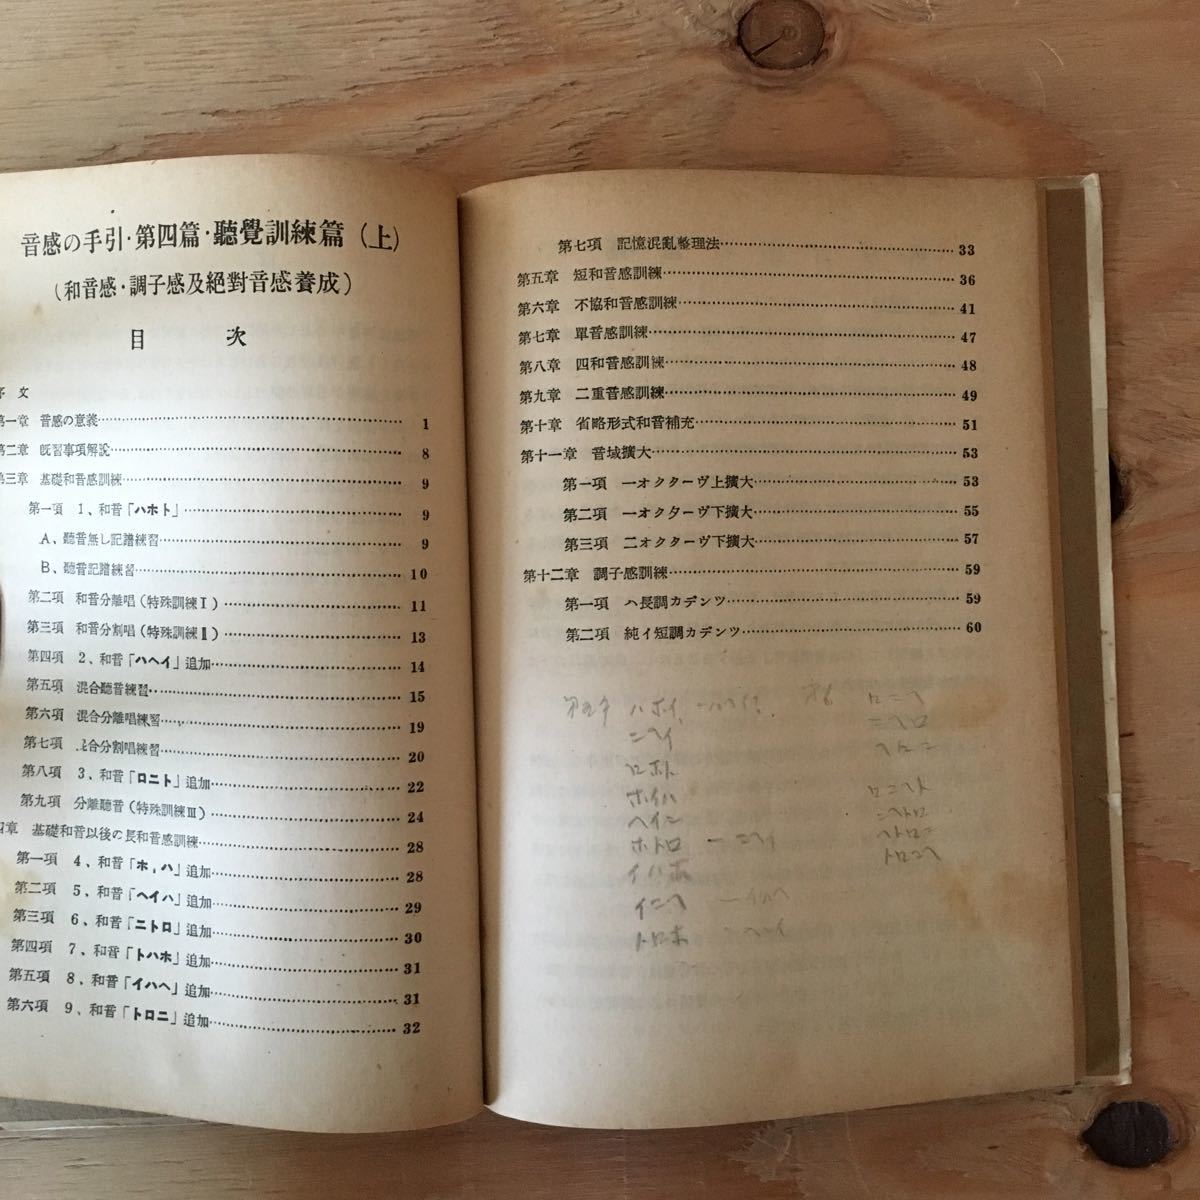 音感の手引・第四篇・聽覺訓練篇（上）
（和音感・調子感及絕對音感養成）
目次
序文
第一章 音感の意義 1
第二章 既習事項解說 8
第三章 基礎和音感訓練 9
第一項 1、和音「ハホト」 9
A、聽音無し記譜練習 9
B、聽音記譜練習 10
第二項 和音分離唱（特殊訓練Ⅰ） 11
第三項 和音分割唱（特殊訓練Ⅱ） 13
第四項 2、和音「ハヘイ」追加 14
第五項 混合聽音練習 15
第六項 混合分離唱練習 19
第七項 混合分割唱練習 20
第八項 3、和音「ロニト」追加 22
第九項 分離聽音（特殊訓練Ⅲ） 24
四章 基礎和音以後の長和音感訓練 28
第一項 4、和音「ホ,ハ」追加 28
第二項 5、和音「ヘイハ」追加 29
第三項 6、和音「ニトロ」追加 30
第四項 7、和音「トハホ」追加 31
第五項 8、和音「イハヘ」追加 31
第六項 9、和音「トロニ」追加 32
第七項 記憶混亂整理法 33
第五章 短和音感訓練 36
第六章 不協和音感訓練 41
第七章 單音感訓練 47
第八章 四和音感訓練 48
第九章 二重音感訓練 49
第十章 省略形式和音補充 51
第十一章 音域擴大 53
第一項 一オクターヴ上擴大 53
第二項 一オクターヴ下擴大 55
第三項 二オクターヴ下擴大 57
第十二章 調子感訓練 59
第一項 ハ長調カデンツ 59
第二項 純イ短調カデンツ 60
ハホイ
ロニヘ
ニヘイ
ニヘロ
ロホト
ヘロニ
ホイハ
ロニヘト
ヘイニ
ニヘトロ
ホトロ ー ニヘイ
ヘトロニ
イハホ
トロニヘ
イニヘ ー イハヘ
トロホ